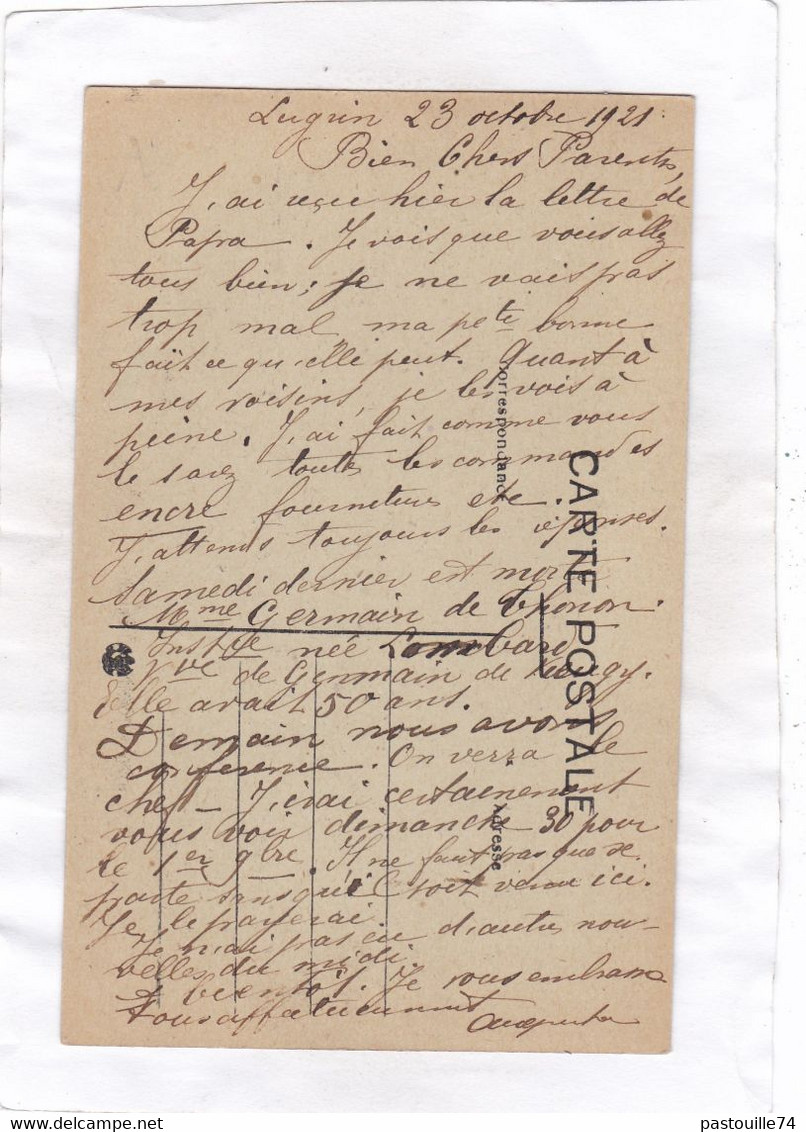 Lugrin 23 octobre 1921.
Bien Chers Parents,
J'ai reçu hier la lettre de
Papa. Je vois que vous allez
tous bien; je ne vais pas
trop mal, ma pete bonne
fait ce qu'elle peut. Quant à
mes voisins, je les vois à
peine. J'ai fait comme vous
le savez toutes les commandes
encre fournitures etc.
J'attends toujours les réponses.
Samedi dernier est morte
Mme Germain de Thonon.
Instce née Lombard
Vve de Germain de
Elle avait 50 ans.
Demain nous avons
conférence. On verra le
chef - J'irai certainement
vous voir dimanche 30 pour
le 1er 9bre. Il ne faut pas que
parte sans qu'il soit venu ici.
Je le payerai.
Je n'ai pas eu d'autres nou-
velles du midi.
bientôt. Je vous embrasse
Tous affectueusement
Augusta
Correspondance
CARTE POSTALE
Adresse
pastouille74